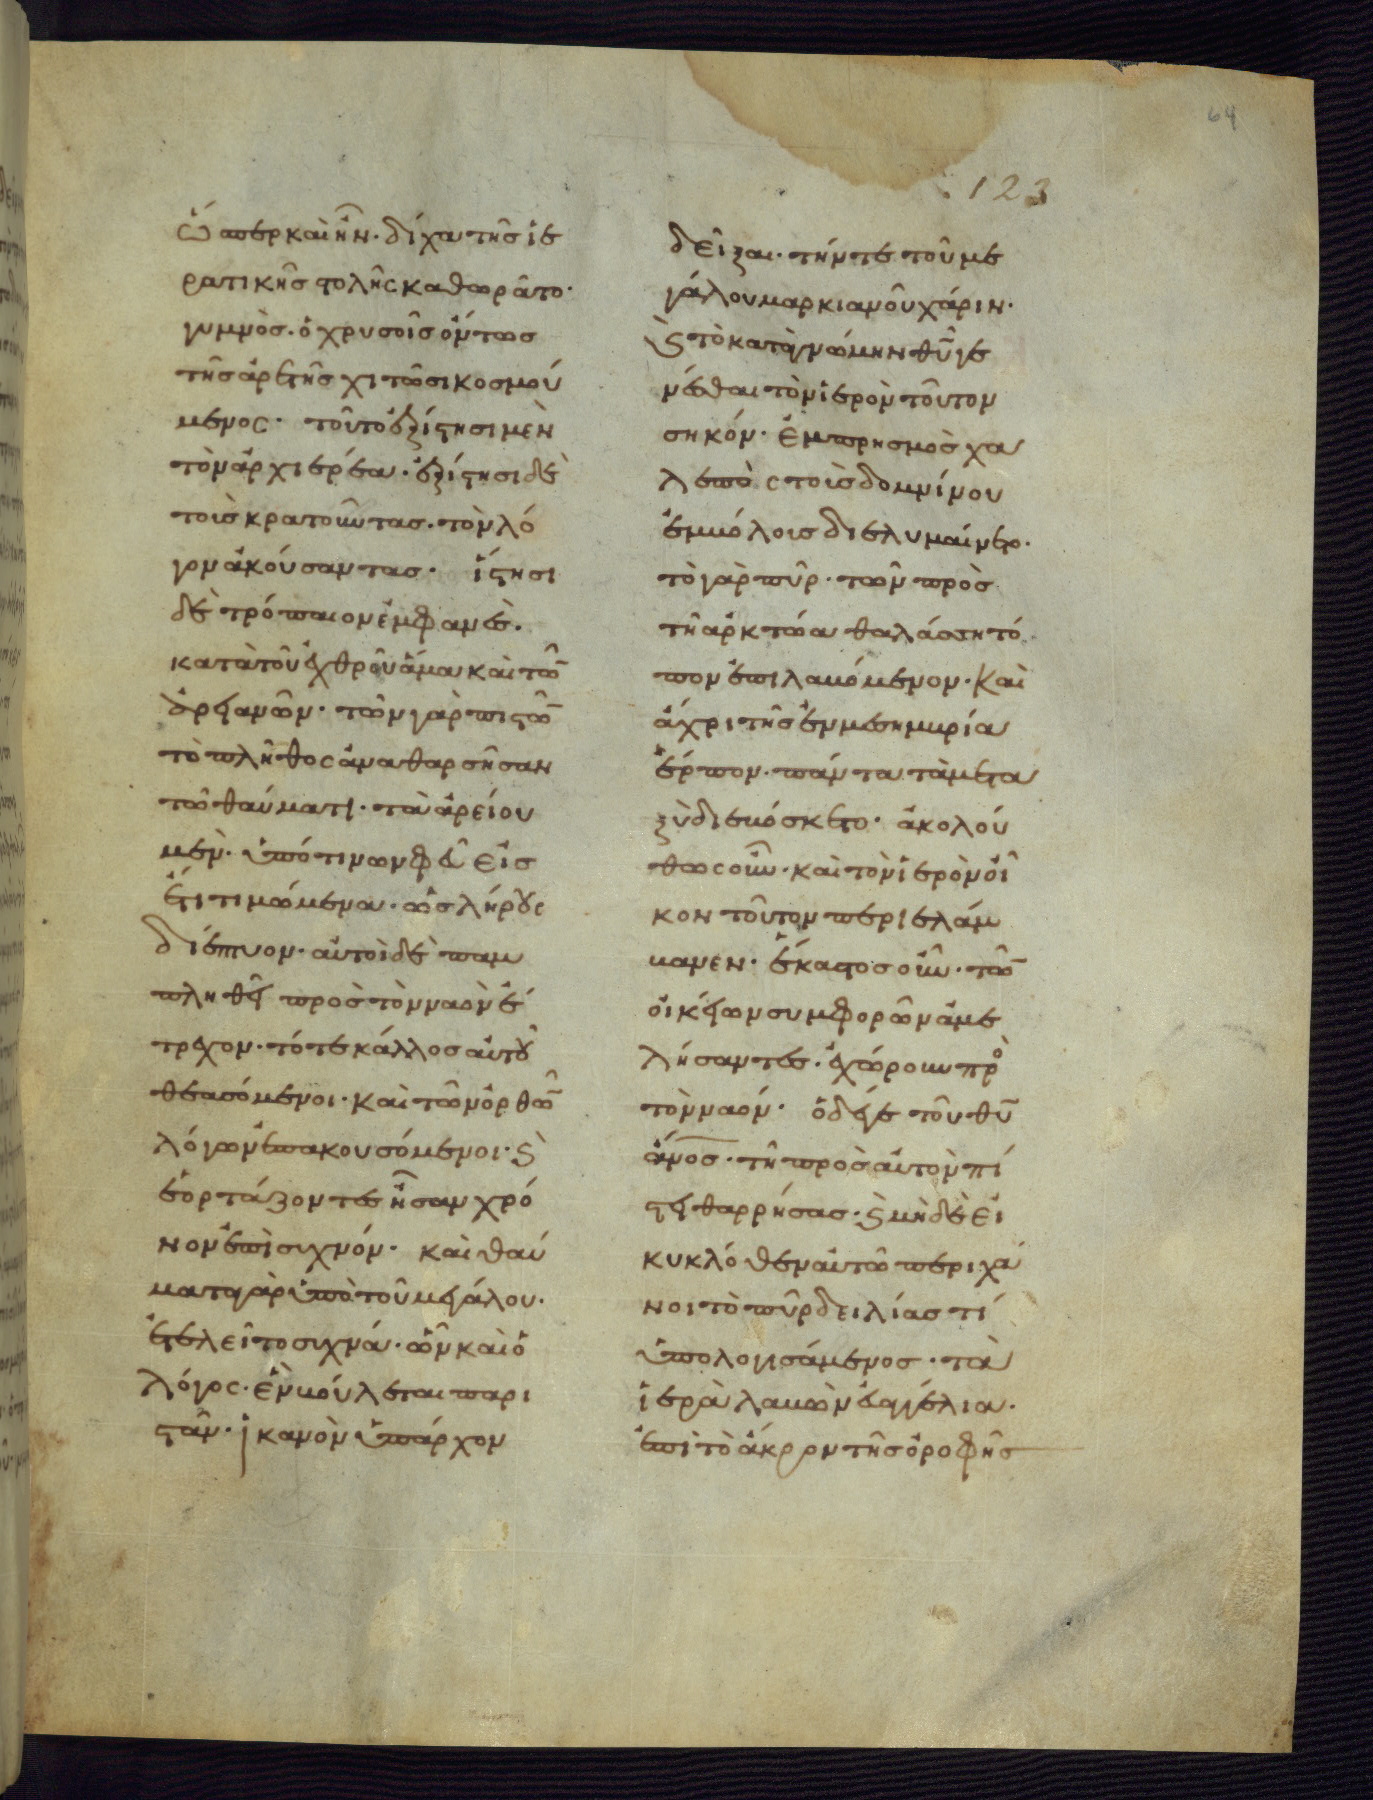 64
123
ὥσπερ καὶ ἦν· δίχα τῆς ἱε
ρατικῆς στολῆς καθωρᾶτο·
γυμνὸς· ὁ χρυσοῖς ὄντως
τῆς ἀρετῆς χιτῶσι κοσμού
μενος· τοῦτο ἐξίστησι μὲν
τὸν ἀρχιερέα· ἐξίστησι δὲ
τοὺς κρατοῦντας· τὸν λό
γον ἀκούσαντας· ἵστησι
δὲ τρόπαιον ἐμφανὲς·
κατὰ τοῦ ἐχθροῦ ἅμα καὶ τῶν
ἀρειανῶν· τῶν γὰρ πιστῶν
τὸ πλῆθος ἀναθαρσῆσαν
τῷ θαύματι· τὰ ἀρείου
μὲν· ὑπό τινων φεῦ εἰς
ἔτι τιμώμενα· ὡς λήρους
διέπτυον· αὐτοὶ δὲ παμ
πληθεὶ πρὸς τὸν ναὸν ἔ
τρεχον· τό τε κάλλος αὐτοῦ
θεασόμενοι· καὶ τῶν ὀρθῶν
λόγων ἐπακουσόμενοι· καὶ
ἑορτάζοντες ἦσαν χρό
νον ἐπὶ συχνόν· καὶ θαύ
ματα γὰρ ὑπὸ τοῦ μεγάλου·
ἐτελεῖτο συχνά· ὧν καὶ ὁ
λόγος· ἓν βούλεται παρι
στᾶν· ἱκανὸν ὑπάρχον
δεῖξαι· τήν τε τοῦ με
γάλου μαρκιανοῦ χάριν·
καὶ τὸ κατὰ γνώμην θυ γε
νέσθαι τὸν ἱερὸν τοῦτον
σηκόν· ἐμπρησμὸς χα
λεπὸς τοῖς δομνίνου
ἐμβόλοις διελυμαίνετο·
τὸ γὰρ πῦρ· τῶν πρὸς
τῇ ἀρκτώα θαλάσση τό
πον ἐπιλαβόμενον· καὶ
ἄχρι τῆς ἐν μεσημβρία
ἕρπον· πάντα τὰ μετα
ξὺ διεβόσκετο· ἀκολού
θως οὖν· καὶ τὸν ἱερὸν οἶ
κον τοῦτον περιελάμ
βανεν· ἕκαστος οὖν· τῶν
οἰκείων συμφορῶν ἀμε
λήσαντες· ἐχώρουν πρὸ
τὸν ναόν· ὁ δέ γε τοῦ θυ
ἄνος· τῆ πρὸς αὐτὸν πί
στει θαρρήσας· καὶ μὴδὲ εἰ
κυκλόθεν αὐτῶ περιχαί
νοι τὸ πῦρ δειλίας τί
ὑπολογισάμενος· τὰ
ἱερὰ λαβὼν εὐαγγέλια·
ἐπὶ τὸ ἄκρον τῆς ὀροφῆς